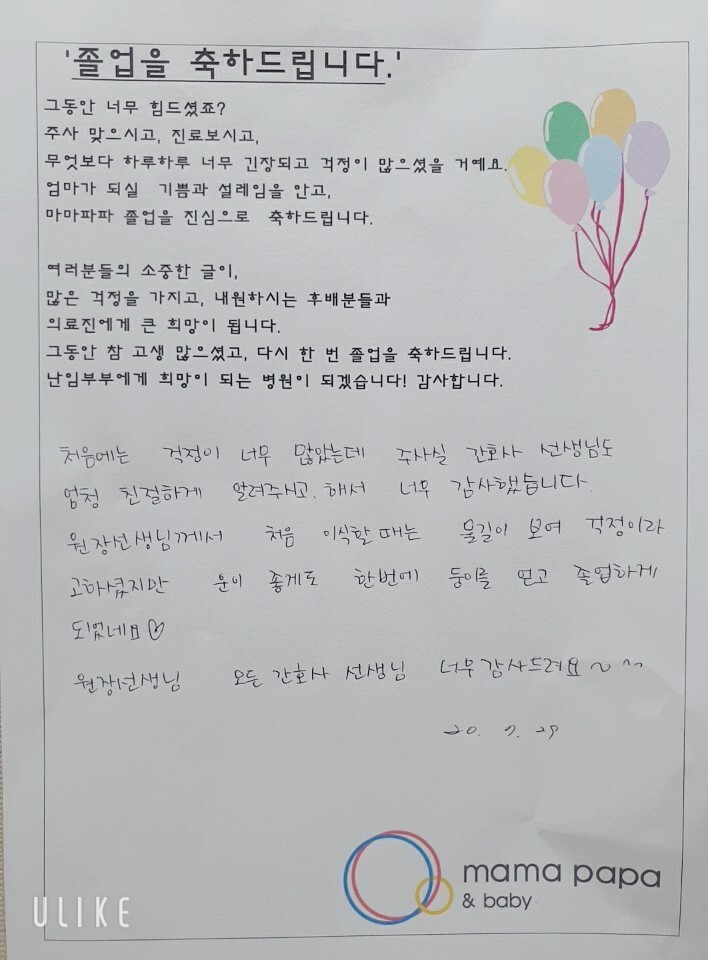 '졸업을 축하드립니다.'
그동안 너무 힘드셨죠?
주사 맞으시고, 진료보시고,
무엇보다 하루하루 너무 긴장되고 걱정이 많으셨을 거예요.
엄마가 되실 기쁨과 설레임을 안고,
마마파파 졸업을 진심으로 축하드립니다.
여러분들의 소중한 글이,
많은 걱정을 가지고, 내원하시는 후배분들과
의료진에게 큰 희망이 됩니다.
그동안 참 고생 많으셨고, 다시 한 번 졸업을 축하드립니다.
난임부부에게 희망이 되는 병원이 되겠습니다! 감사합니다.
처음에는 걱정이 너무 많았는데 주사실 간호사 선생님도
엄청 친절하게 알려주시고. 해서 너무 감사했습니다
원장선생님께서 처음 이식할 때는 물길이 보여 걱정이라
고하셨지만 운이 좋게도 한번에 둥이를 얻고 졸업하게
되었네요♡
원장선생님 모든 간호사 선생님 너무 감사드려요~^^
20. 7. 29
mama papa
& baby
ULIKE